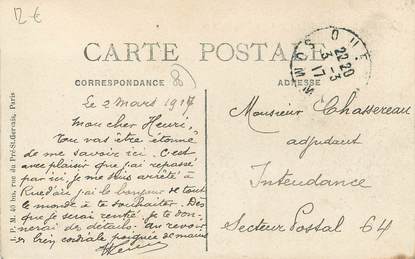 12 €
CARTE POSTALE
CORRESPONDANCE
80
ADRESSE
RUE
22-20
3-3
17
SOMME
Le 2 mars 1917
Mon cher Henri,
Tu vas être étonné
de me savoir ici. C'est
avec plaisir que j'ai repassé
par ici, je me suis arrêté à
Rue d'où j'ai le bonjour de tout
le monde à te souhaiter. Dès
que je serai rentré, je te don-
nerai de détails. Au revoir
et bien cordiale poignée de mains
Monsieur Chassereau
adjudant
Intendance
Secteur Postal 64
I. P. M. 40 bis, rue du Pré-St-Gervais, Paris